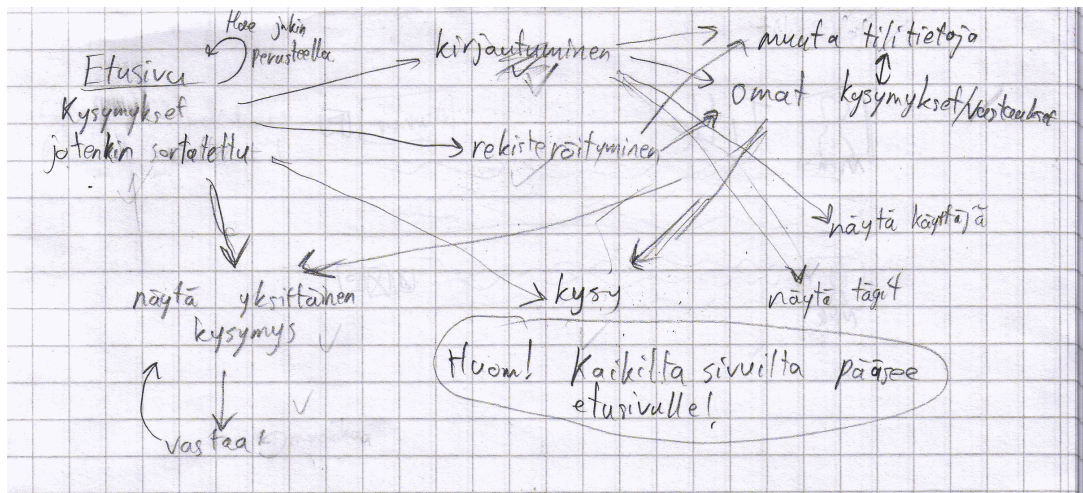 Hae jokin
perusteella
Etusivu
Kysymykset
jotenkin sortatettu
kirjautuminen
rekisteröityminen
muuta tilitietoja
omat kysymykset/vastaukset
näytä käyttäjä
näytä tägit
näytä yksittäinen
kysymys
kysy
vastaa
Huom! Kaikilta sivuilta pääsee
etusivulle!